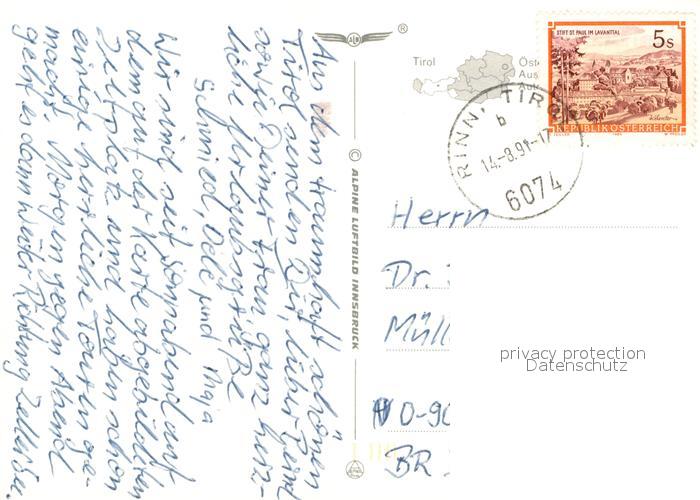 Aus dem traumhaft schönen
Tirol senden Dir, lieber Bernd
sowie Deiner Frau ganz herz-
liche Urlaubsgrüße
Schmied, Dele und Maja
Wir sind seit Sonnabend auf
dem auf der Karte abgebildeten
Zeltplatz und haben schon
einige herrliche Touren ge-
macht. Morgen gegen Abend
geht es dann weiter Richtung Zell
ALPINE LUFTBILD INNSBRUCK
©
®
Tirol
Öste
Aus
Aut
STIFT ST. PAUL IM LAVANTTAL
5s
REPUBLIK ÖSTERREICH
RINN, TIROL
b
14.-8.91-17
6074
Herrn
Dr.
Müll
O-90
BR
privacy protection
Datenschutz